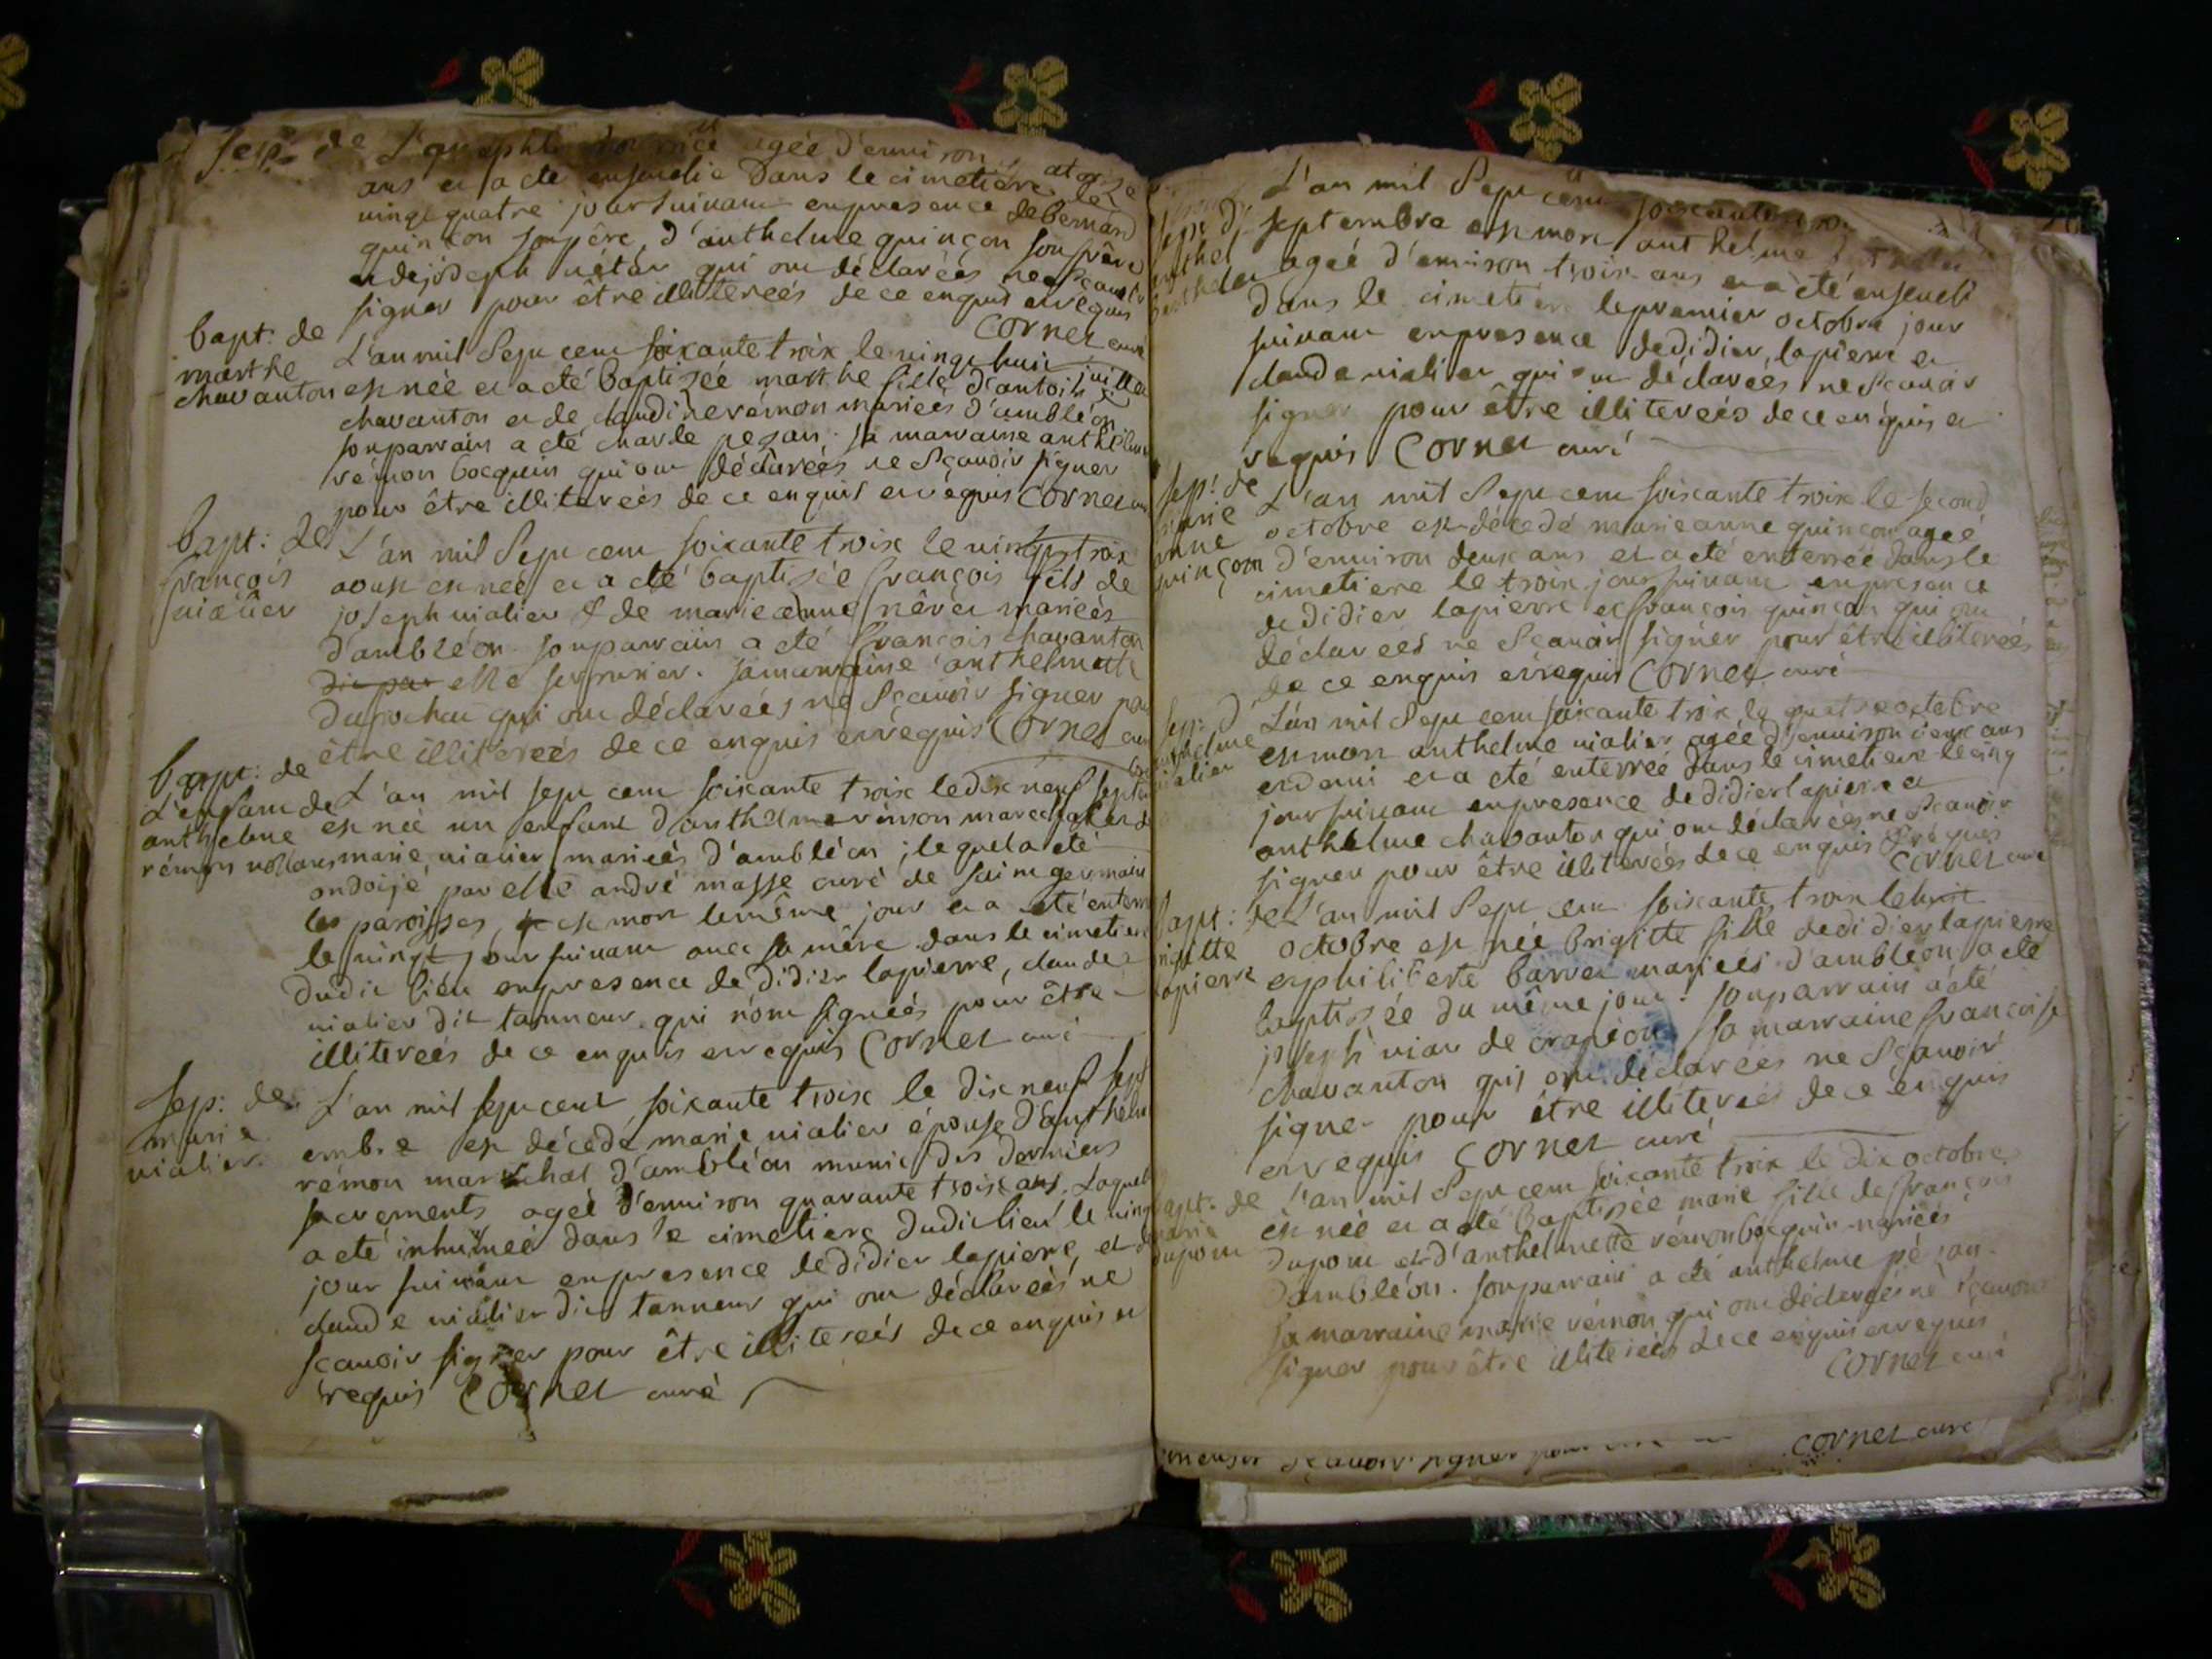 Sep: de
agée d'enuiron
ans et a été enseuelie dans le cimetiere le
vingt quatre jour suiuant en presence de bernard
quinçon son pere, d'anthelme quinçon son frère
et de joseph qui ont déclareés ne sçauoir
signer pour être illitereés de ce enquis et réquis
Cornet curé
bapt: de
marthe
chavanton
L'an mil Sept cent soixante troix le vingt huit juillet
est née et a été baptisée marthe fille d'antoine
chavanton et de claudine rémon marieés d'ambléon
son parrain a été charle pezan. Sa marraine anthelme
rémon bocquin qui ont déclareés ne Sçauoir signer
pour être illitereés de ce enquis et réquis Cornet
bapt: de
françois
vialier
L'an mil Sept cent soixante troix le vingt troix
aoust est née et a été baptisée françois fils de
joseph vialier & de marie anne nêret marieés
d'ambléon. son parrain a été françois chavanton
Serrurier. sa marraine anthelmette
durochat qui ont déclareés ne Sçauoir signer pour
être illitereés de ce enquis et réquis Cornet curé
bapt: de
L'enfant de
anthelme
rémon
L'an mil sept cent soixante troix le dix neuf septembre
est née un enfant d'anthelme rémon marechal et de
marie vialier marieés d'ambléon, lequel a été
ondoijé par andré masse curé de saint germain
les paroisses, est mort le même jour et a été enterré
le vingt jour suiuant auec sa mère dans le cimetiere
dudit lieu en presence de didier lapierre, claude
vialier dit tanneur qui n'ont signeés pour être
illitereés de ce enquis et requis Cornet curé
Sep: de
marie
vialier.
L'an mil sept cent soixante troix le dix neuf sept
embre est décédé marie vialier épouse d'anthelme
rémon marechal d'ambléon munie des derniers
sacrements agée d'enuiron quarante troix ans. Laquelle
a été inhumeé dans le cimetiere dudit lieu le vingt
jour suiuant en presence de didier lapierre, et de
claude vialier dit tanneur qui ont déclareés ne
sçauoir signer pour être illitereés de ce enquis et
requis Cornet curé
L'an mil Sept cent soixante
septembre est mort anthelme
ageé d'enuiron troix ans et a été enseueli
dans le cimetiere le premier octobre jour
suiuant en presence de didier lapierre et
claude vialier qui ont déclareés ne Sçauoir
signer pour être illitereés de ce enquis et
requis Cornet curé
Sep: de
marie
anne
quinçon
L'an mil Sept cent soixante troix le second
octobre est décédé marie anne quinçon ageé
d'enuiron deux ans et a été enterrée dans le
cimetiere le troix jour suiuant en presence
de didier lapierre et françois quinçon qui ont
déclareés ne Sçauoir signer pour être illitereés
de ce enquis et requis Cornet curé
Sep: d'
anthelme
vialier
L'an mil Sept cent soixante troix le quatre octobre
est mort anthelme vialier agée d'enuiron deux ans
et demi et a été enterré dans le cimetiere le cinq
jour suiuant en presence de didier lapierre et
anthelme chavanton qui ont déclareés ne Sçauoir
signer pour être illitereés de ce enquis & réquis
Cornet curé
bapt: de
brigitte
lapierre
L'an mil Sept cent soixante troix le huit
octobre est née brigitte fille de didier lapierre
et philiberte barret marieés d'ambléon a été
baptisée du même jour. son parrain a été
joseph viar de Sa marraine françoise
chavanton qui ont déclareés ne Sçauoir
signer pour être illitereés de ce enquis
et requis Cornet curé
bapt: de
marie
dupont
L'an mil Sept cent soixante troix le dix octobre
est née et a été baptisée marie fille de françois
dupont et d'anthelmette rémon bocquin marieés
d'ambléon. son parrain a été anthelme pézan.
sa marraine marie rémon qui ont déclareés ne sçauoir
signer pour être illitereés de ce enquis et requis
Cornet curé
Sçauoir signer pour
Cornet curé